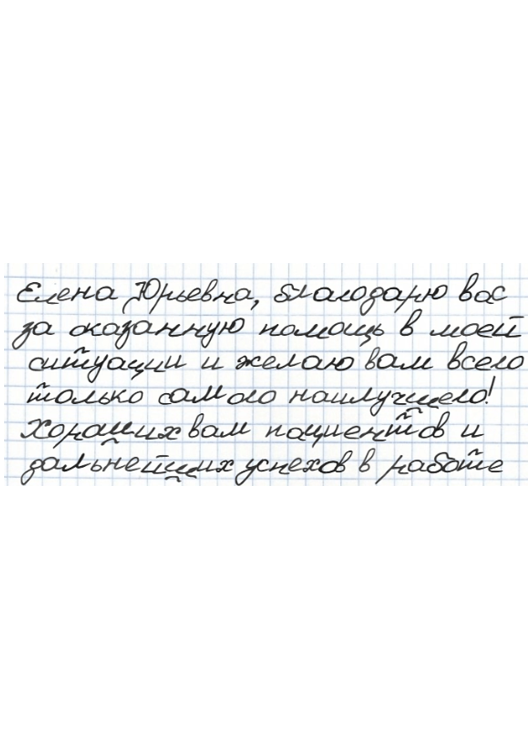 Елена Юрьевна, благодарю вас
за оказанную помощь в моей
ситуации и желаю вам всего
только самого наилучшего!
Хороших вам пациентов и
дальнейших успехов в работе